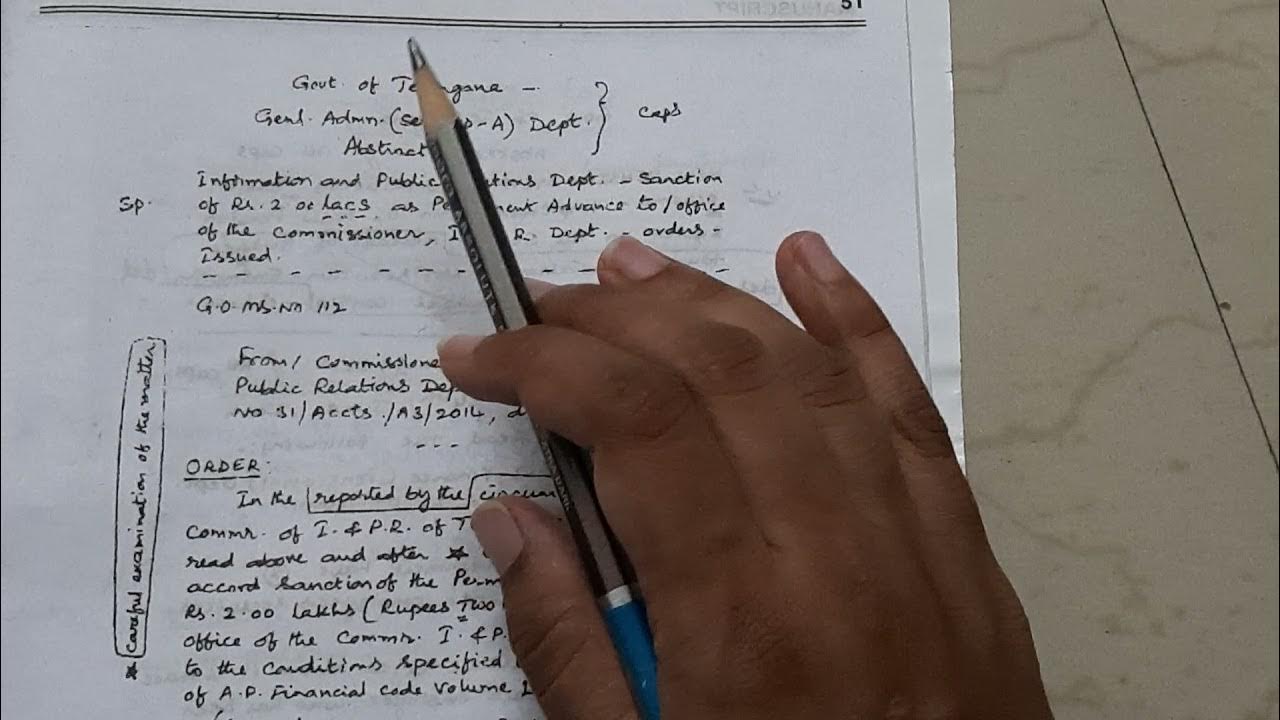 51
Govt. of Telangana -
Genl. Admn. (Ser    s-A) Dept. } Caps
Abstract
Information and Public    tions Dept. - Sanction
Sp. of Rs. 2 oo lacs as Pe    ent Advance to/office
of the Commissioner, I    R. Dept. - orders -
Issued.
G.O.Ms.No 112
From/ Commissione
Public Relations Dep
No 31/Accts./A3/2014, d
---
ORDER:
In the reported by the circum
Commr. of I. & P.R. of T
read above and after *
accord sanction of the Perm
Rs. 2.00 lakhs (Rupees Two
office of the Commr. I. & P.
to the conditions specified
of A.P. Financial code volume I
* Careful examination of the matter